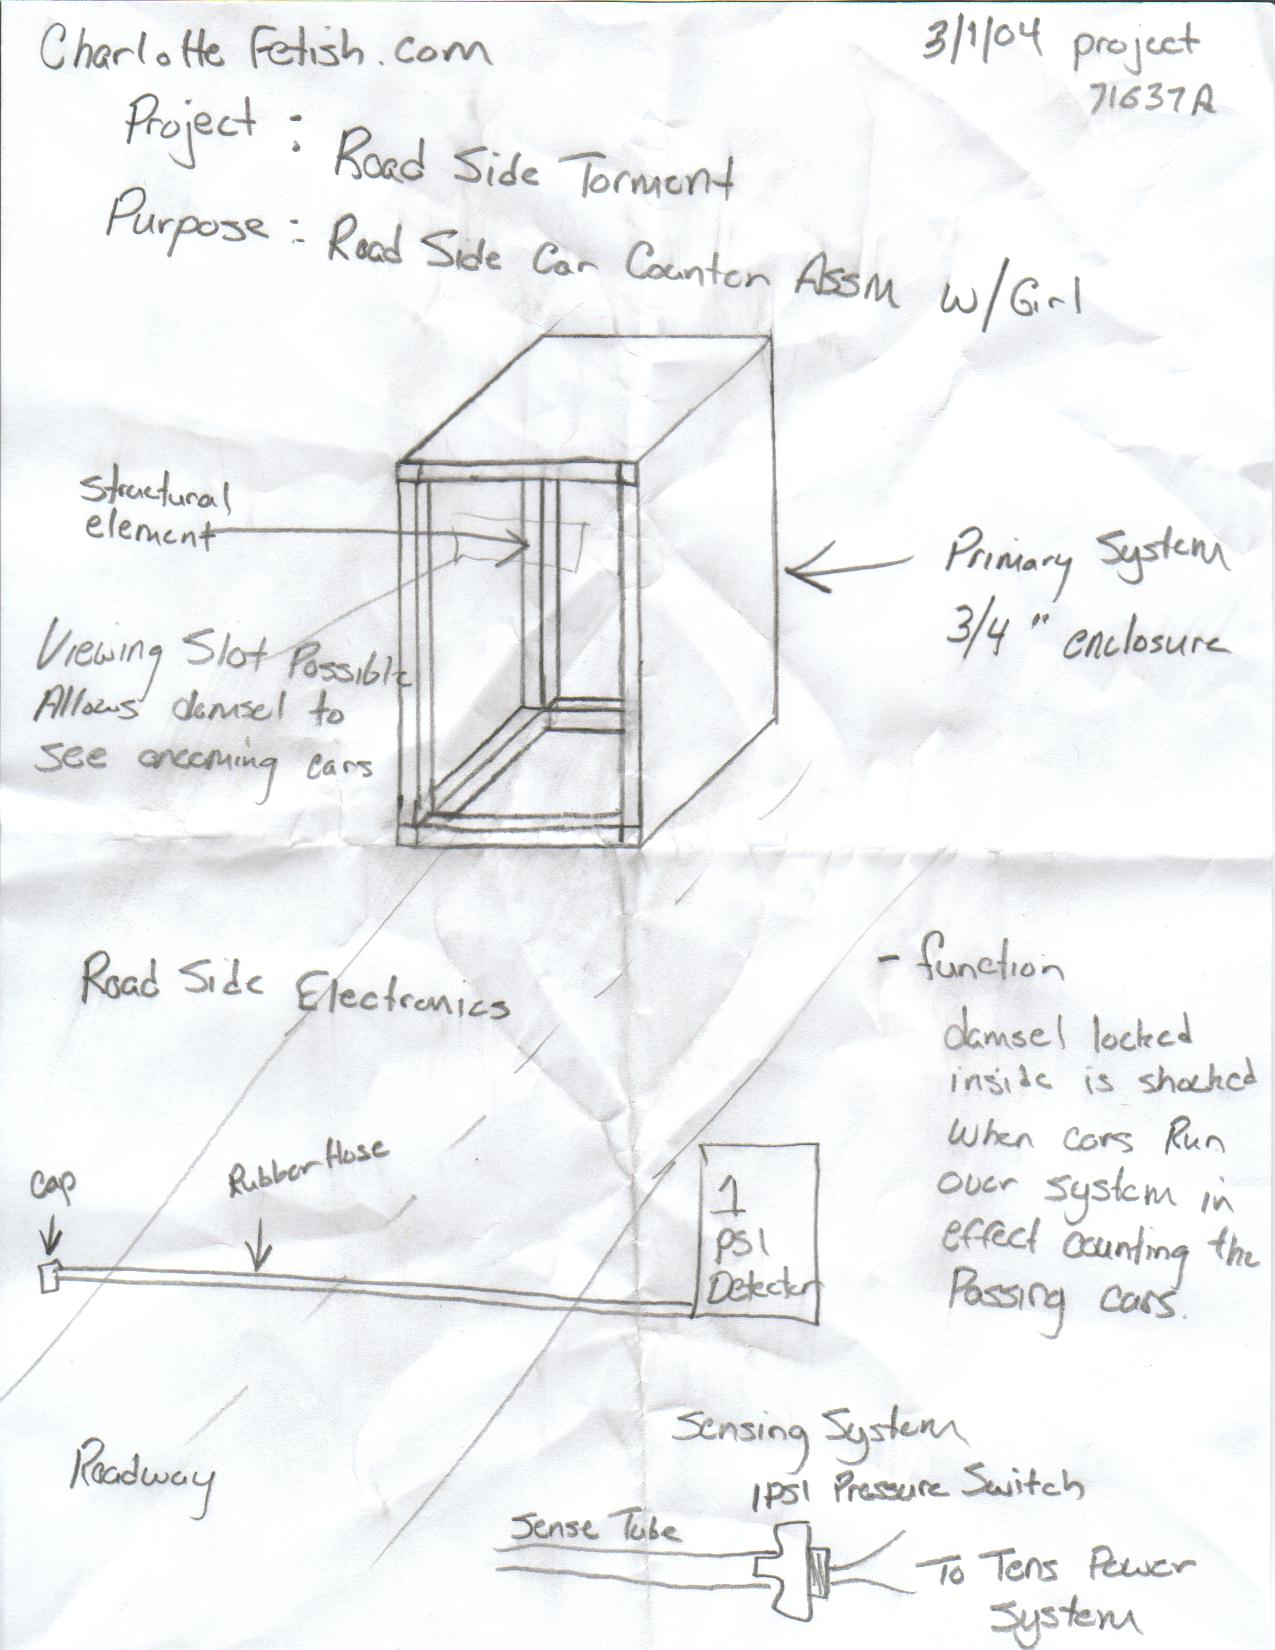 CharlotteFetish.com
3/1/04 project
71637A
Project : Road Side Torment
Purpose : Road Side Car Counter Assm w/Girl
Structural
element
Primary System
3/4" enclosure
Viewing Slot Possible
Allows damsel to
see oncoming cars
Road Side Electronics
- function
damsel locked
inside is shocked
when cars Run
over system in
effect counting the
Passing cars.
Cap
Rubber Hose
1
PSI
Detector
Roadway
Sensing System
1PSI Pressure Switch
Sense Tube
To Tens Power
System